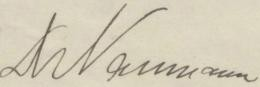 Dr Naumann